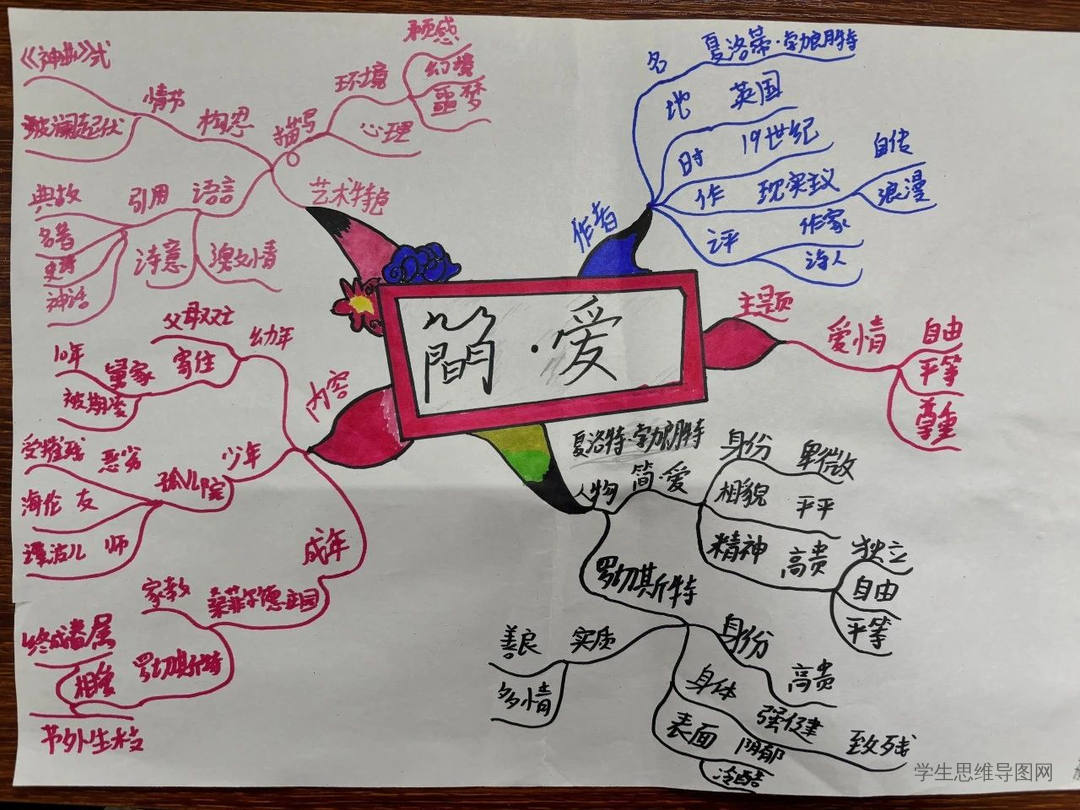 簡·爱
作者
名 夏洛蒂·勃朗特
地 英国
时 19世纪
作 现实主义
自传
浪漫
评 作家
诗人
主题
爱情
自由
平等
尊重
夏洛特·勃朗特
人物
简·爱
身份 卑微
相貌 平平
精神 高贵
独立
自由
平等
罗切斯特
身份 高贵
身体 强健 致残
表面 阴郁
冷酷
实质
善良
多情
内容
幼年
父母双亡
寄住 舅家
10年
被期坐
少年
孤儿院
受摧残 恶劣
海伦 友
谭波儿 师
成年
桑菲尔德庄园
家教
罗切斯特
终成眷属
相爱
节外生枝
艺术特色
构思
情节
《神曲》式
波澜起伏
描写
环境
预感
幻境
噩梦
心理
语言
引用
典故
名著
史诗
神话
诗意
学生思维导图网